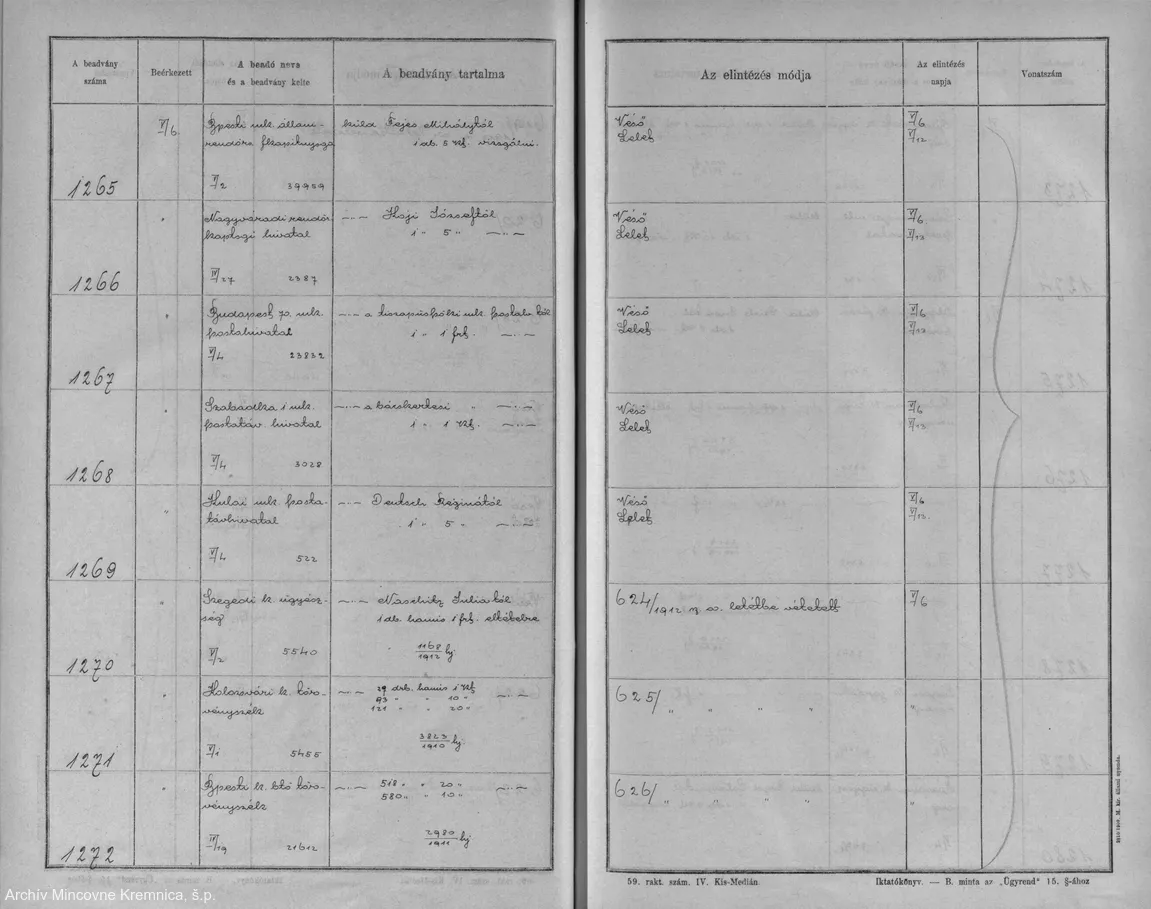 A beadvány száma
Beérkezett
A beadó neve és a beadvány kelte
A beadvány tartalma
Az elintézés módja
Az elintézés napja
Vonatszám
1265
VI/6
Bpesti mk. állam-
rendőrs. fkapitányság
VI/2 39959
küld Fejes Mihálytól
1 db. 5 K. vizsgálni.
Véső
Lelet
VI/6
VI/12
1266
"
Nagyváradi rendőr
kapitsgi hivatal
IV/27 2387
—..— Haji Józseftől
1 " 5 " —..—
Véső
Lelet
VI/6
VI/13
1267
"
Budapest 70. mk.
postahivatal
VI/4 23832
1 " 1 frt. —..—
Véső
Lelet
VI/6
VI/13
1268
"
Szabadka 1 mk.
postatáv. hivatal
VI/4 3028
—..— a bácskertesi " —..—
1 " 1 K. —..—
Véső
Lelet
VI/6
VI/13
1269
"
Kulai mk. posta-
távhivatal
VI/4 522
—..— Deutsch Reginától
1 " 5 " —..—
Véső
Lelet
VI/6
VI/13.
1270
"
Szegedi k. ügyész-
ség
VI/2 5540
—..— Julia tól
1 db. hamis 1 frt.
1168/1912 bj
624/1912 sz. letétbe vétetett
VI/6
1271
"
Kolozsvári k. törv-
vényszék
VI/1 5455
—..— 29 drb. hamis 1 K
93 " " 10 " —..—
121 " " 20 "
3823/1910 bj.
625/ " " " "
"
1272
"
Bpesti k. btő törv-
vényszék
IV/19 21612
—..— 518 " " 20 " —..—
580 " " 10 "
2980/1911 bj
626/ " " " "
"
59. rakt. szám. IV. Kis-Medián.
Iktatókönyv. — B. minta az „Ügyrend“ 15. §-ához
Archív Mincovne Kremnica, š.p.